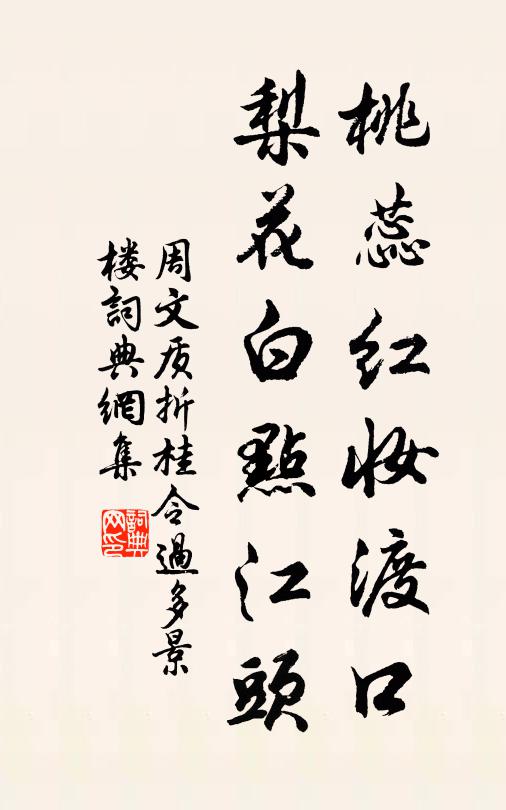 桃蕊红妆渡口
梨花白點江頭
周文质折桂令過多景
楼詞典網集
詞典网印